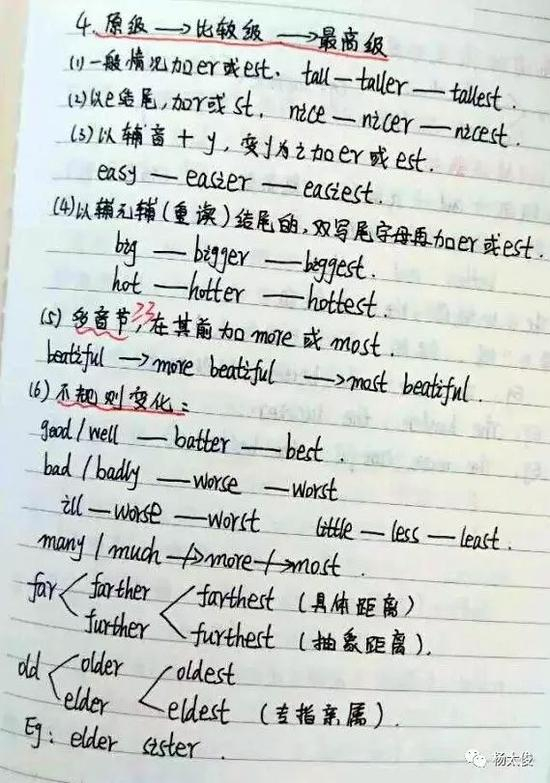 4. 原级 → 比较级 → 最高级
(1) 一般情况加er或est. tall — taller — tallest.
(2) 以e结尾,加r或st. nice — nicer — nicest.
(3) 以辅音 + y, 变y为i加er或est.
easy — easier — easiest.
(4) 以辅元辅(重读)结尾的,双写尾字母再加er或est.
big — bigger — biggest.
hot — hotter — hottest.
(5) 多音节,在其前加 more 或 most.
beatiful → more beatiful → most beatiful.
(6) 不规则变化:
good / well — batter — best.
bad / badly — worse — worst
ill — worse — worst little — less — least.
many / much → more → most.
far farther farthest (具体距离)
further furthest (抽象距离).
old older oldest
elder eldest (专指亲属).
Eg: elder sister.
杨太俊